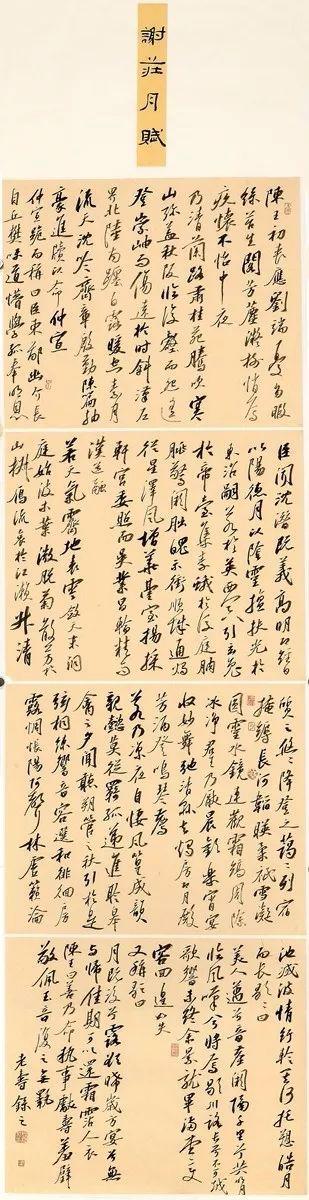 謝莊月賦
陳王初喪應劉端憂多暇
綠苔生閣芳塵凝榭悄焉
疚懷不怡中夜
乃清蘭路肅桂苑騰吹寒
山弭蓋秋阪臨濬壑而怨遙
登崇岫而傷遠於時斜漢左
界北陸南躔白露曖空素月
流天沈吟齊章殷勤陳篇抽
豪進牘以命仲宣
仲宣跪而稱曰臣東鄙幽介長
自丘樊味道懵學孤奉明恩
臣聞沈潛既義高明既經日
以陽德月以陰靈擅扶光於
東沼嗣若英於西冥引玄兔
於帝臺集素娥於後庭朒
朓警闕朏魄示沖順辰通燭
從星澤風增華臺室揚採
軒宮委照而吳業昌淪精而
漢道融
若夫氣霽地表雲斂天末洞
庭始波木葉微脫菊散芳於
山椒雁流哀於江瀨升清
質之悠悠降澄之藹藹列宿
掩縟長河韜映柔祇雪凝
圓靈水鏡連觀霜縞周除
冰淨君王乃厭晨歡樂宵宴
收妙舞弛清縣去燭房即月殿
芳酒登鳴琴薦
若乃涼夜自悽風篁成韻
親懿莫從羈孤遞進聆皋
禽之夕聞聽朔管之秋引於是
弦桐練響音容選和徘徊房
露惆悵陽阿聲林虛籟淪
池滅波情紆軫其何托愬皓月
而長歌曰
美人邁兮音塵闕隔千里兮共明月
臨風嘆兮將焉歇川路長兮不可越
歌響未終余景就畢滿堂變
容回遑如失
又稱歌曰
月既沒兮露欲晞歲方晏兮無
與歸佳期可以還霜霑人衣
陳王曰善乃命執事獻壽羞璧
敬佩玉音復之無斁